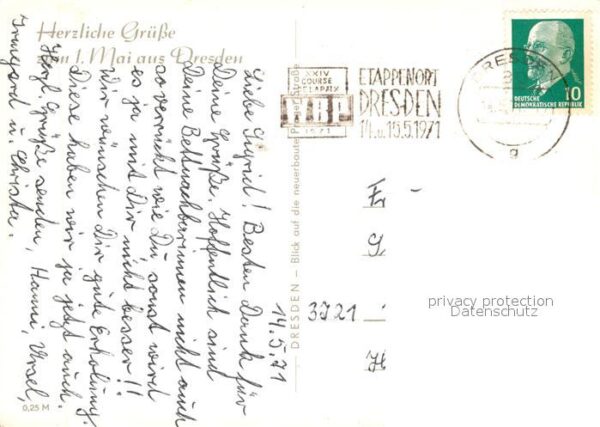 Herzliche Grüße
zum 1. Mai aus Dresden
14.5.71
Liebe Sigrid! Besten Dank für
Deine Grüße. Hoffentlich sind
Deine Bettnachbarinnen nicht auch
so verrückt wie Du, sonst wird
es ja mit Dir nicht besser!!
Wir wünschen Dir gute Erholung.
Diese haben wir ja jetzt auch.
Herzl. Grüße senden, Hanni, Ursel,
Irmgard u. Christa.
0,25 M
DRESDEN — Blick auf die neuerbaute Prager Straße
XXIV
COURSE
DE LA PAIX
WBP
1971
ETAPPENORT
DRESDEN
14.u.15.5.1971
DRESDEN
DEUTSCHE
DEMOKRATISCHE REPUBLIK
10
E
G
3721
H
privacy protection
Datenschutz